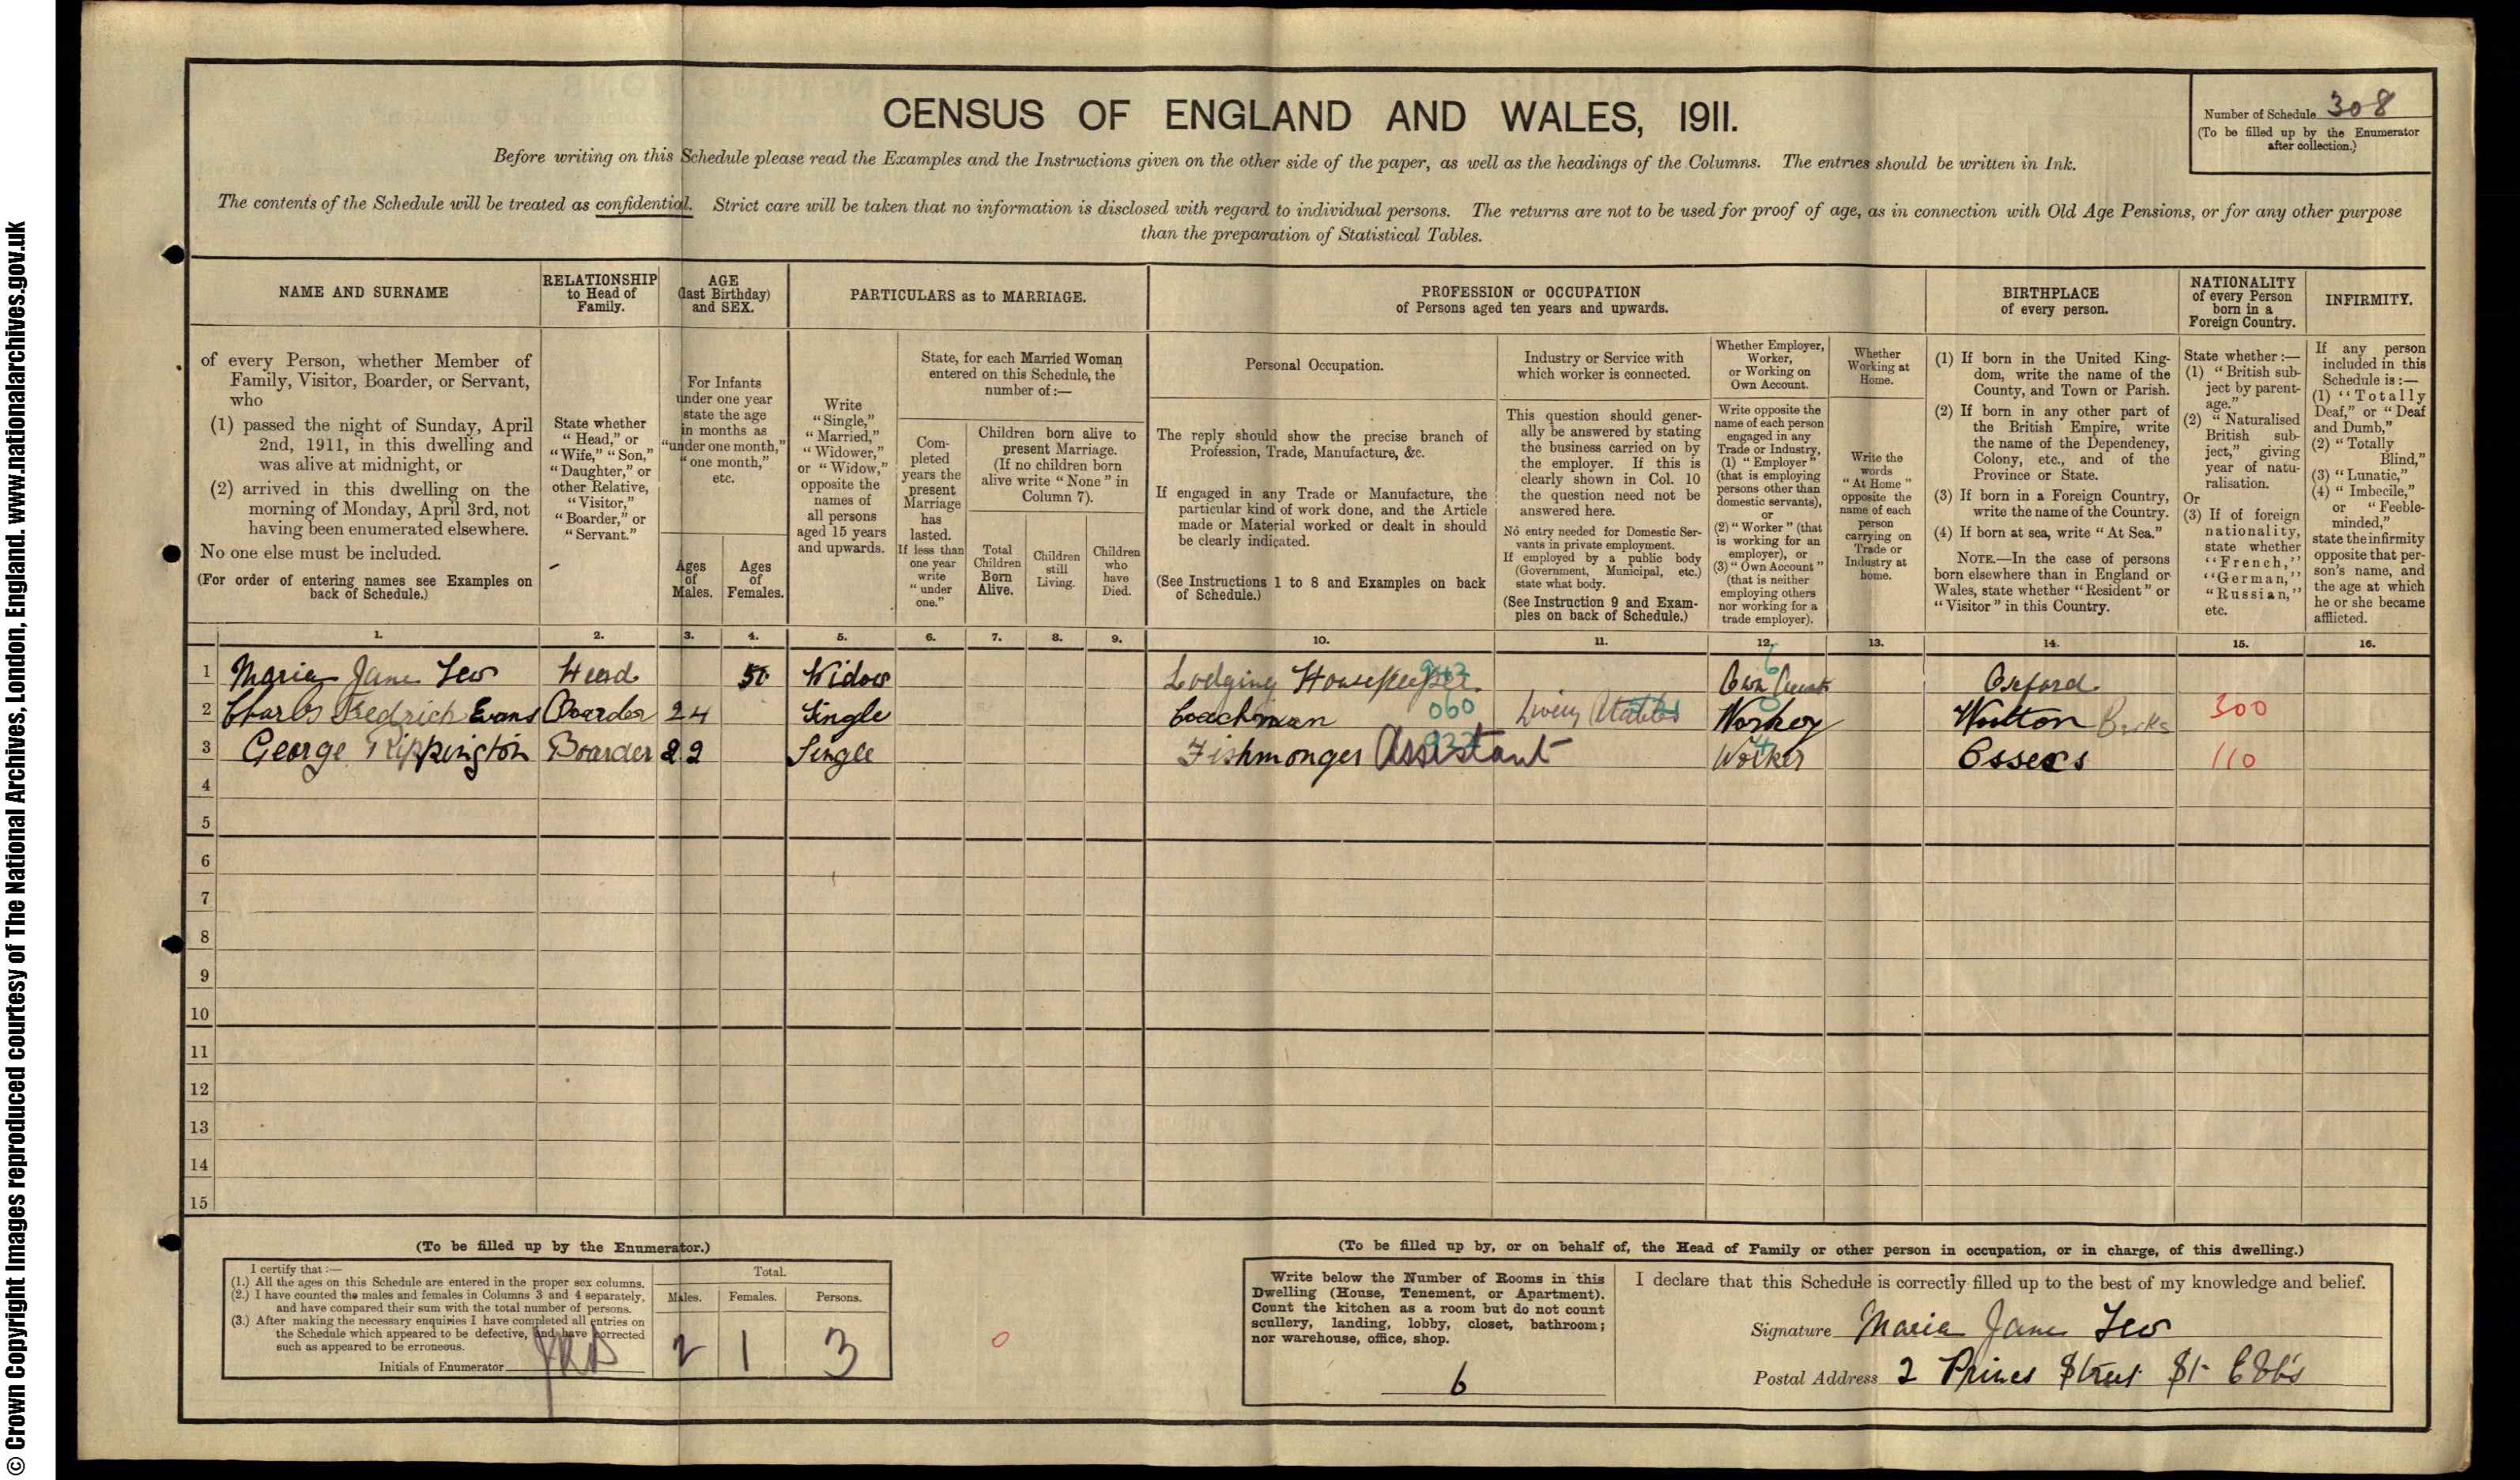 © Crown Copyright Images reproduced courtesy of The National Archives, London, England. www.nationalarchives.gov.uk
CENSUS OF ENGLAND AND WALES, 1911.
Number of Schedule 308
(To be filled up by the Enumerator
after collection.)
Before writing on this Schedule please read the Examples and the Instructions given on the other side of the paper, as well as the headings of the Columns. The entries should be written in Ink.
The contents of the Schedule will be treated as confidential. Strict care will be taken that no information is disclosed with regard to individual persons. The returns are not to be used for proof of age, as in connection with Old Age Pensions, or for any other purpose
than the preparation of Statistical Tables.
NAME AND SURNAME
of every Person, whether Member of
Family, Visitor, Boarder, or Servant,
who
(1) passed the night of Sunday, April
2nd, 1911, in this dwelling and
was alive at midnight, or
(2) arrived in this dwelling on the
morning of Monday, April 3rd, not
having been enumerated elsewhere.
No one else must be included.
(For order of entering names see Examples on
back of Schedule.)
RELATIONSHIP
to Head of
Family.
State whether
"Head," or
"Wife," "Son,"
"Daughter," or
other Relative,
"Visitor,"
"Boarder," or
"Servant."
AGE
(last Birthday)
and SEX.
For Infants
under one year
state the age
in months as
"under one month,"
"one month,"
etc.
Ages
of
Males.
Ages
of
Females.
PARTICULARS as to MARRIAGE.
Write
"Single,"
"Married,"
"Widower,"
or "Widow,"
opposite the
names of
all persons
aged 15 years
and upwards.
State, for each Married Woman
entered on this Schedule, the
number of:—
Com-
pleted
years the
present
Marriage
has
lasted.
If less than
one year
write
"under
one."
Children born alive to
present Marriage.
(If no children born
alive write "None" in
Column 7).
Total
Children
Born
Alive.
Children
still
Living.
Children
who
have
Died.
PROFESSION or OCCUPATION
of Persons aged ten years and upwards.
Personal Occupation.
The reply should show the precise branch of
Profession, Trade, Manufacture, &c.
If engaged in any Trade or Manufacture, the
particular kind of work done, and the Article
made or Material worked or dealt in should
be clearly indicated.
(See Instructions 1 to 8 and Examples on back
of Schedule.)
Industry or Service with
which worker is connected.
This question should gener-
ally be answered by stating
the business carried on by
the employer. If this is
clearly shown in Col. 10
the question need not be
answered here.
No entry needed for Domestic Ser-
vants in private employment.
If employed by a public body
(Government, Municipal, etc.)
state what body.
(See Instruction 9 and Exam-
ples on back of Schedule.)
Whether Employer,
Worker,
or Working on
Own Account.
Write opposite the
name of each person
engaged in any
Trade or Industry,
(1) "Employer"
(that is employing
persons other than
domestic servants),
or
(2) "Worker" (that
is working for an
employer), or
(3) "Own Account"
(that is neither
employing others
nor working for a
trade employer).
Whether
Working at
Home.
Write the
words
"At Home"
opposite the
name of each
person
carrying on
Trade or
Industry at
home.
BIRTHPLACE
of every person.
(1) If born in the United King-
dom, write the name of the
County, and Town or Parish.
(2) If born in any other part of
the British Empire, write
the name of the Dependency,
Colony, etc., and of the
Province or State.
(3) If born in a Foreign Country,
write the name of the Country.
(4) If born at sea, write "At Sea."
NOTE.—In the case of persons
born elsewhere than in England or
Wales, state whether "Resident" or
"Visitor" in this Country.
NATIONALITY
of every Person
born in a
Foreign Country.
State whether:—
(1) "British sub-
ject by parent-
age."
(2) "Naturalised
British sub-
ject," giving
year of natu-
ralisation.
Or
(3) If of foreign
nationality,
state whether
"French,"
"German,"
"Russian,"
etc.
INFIRMITY.
If any person
included in this
Schedule is:—
(1) "Totally
Deaf," or "Deaf
and Dumb,"
(2) "Totally
Blind,"
(3) "Lunatic,"
(4) "Imbecile,"
or "Feeble-
minded,"
state the infirmity
opposite that per-
son's name, and
the age at which
he or she became
afflicted.
1. 2. 3. 4. 5. 6. 7. 8. 9. 10. 11. 12. 13. 14. 15. 16.
1 Maria Jane Tew Head Widow Lodging Housekeeper Own Oxford
2 Charles Fredrich Evans Boarder 24 Single Coachman 060 Livery Stables Worker Berks 300
3 George Rippington Boarder 22 Single Fishmonger Assistant Worker Essex 110
4
5
6
7
8
9
10
11
12
13
14
15
(To be filled up by the Enumerator.)
I certify that:—
(1.) All the ages on this Schedule are entered in the proper sex columns.
(2.) I have counted the males and females in Columns 3 and 4 separately,
and have compared their sum with the total number of persons.
(3.) After making the necessary enquiries I have completed all entries on
the Schedule which appeared to be defective, and have corrected
such as appeared to be erroneous.
Initials of Enumerator
Total.
Males. Females. Persons.
2 1 3
0
(To be filled up by, or on behalf of, the Head of Family or other person in occupation, or in charge, of this dwelling.)
Write below the Number of Rooms in this
Dwelling (House, Tenement, or Apartment).
Count the kitchen as a room but do not count
scullery, landing, lobby, closet, bathroom;
nor warehouse, office, shop.
6
I declare that this Schedule is correctly filled up to the best of my knowledge and belief.
Signature Maria Jane Tew
Postal Address 2 Princes Street St